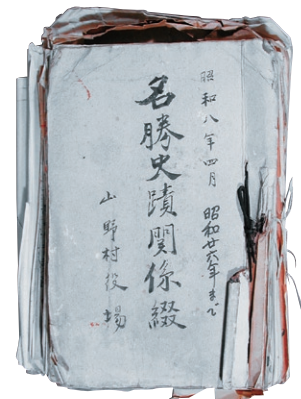 昭和八年四月 昭和廿六年まで
名勝史蹟関係綴
山野村役場